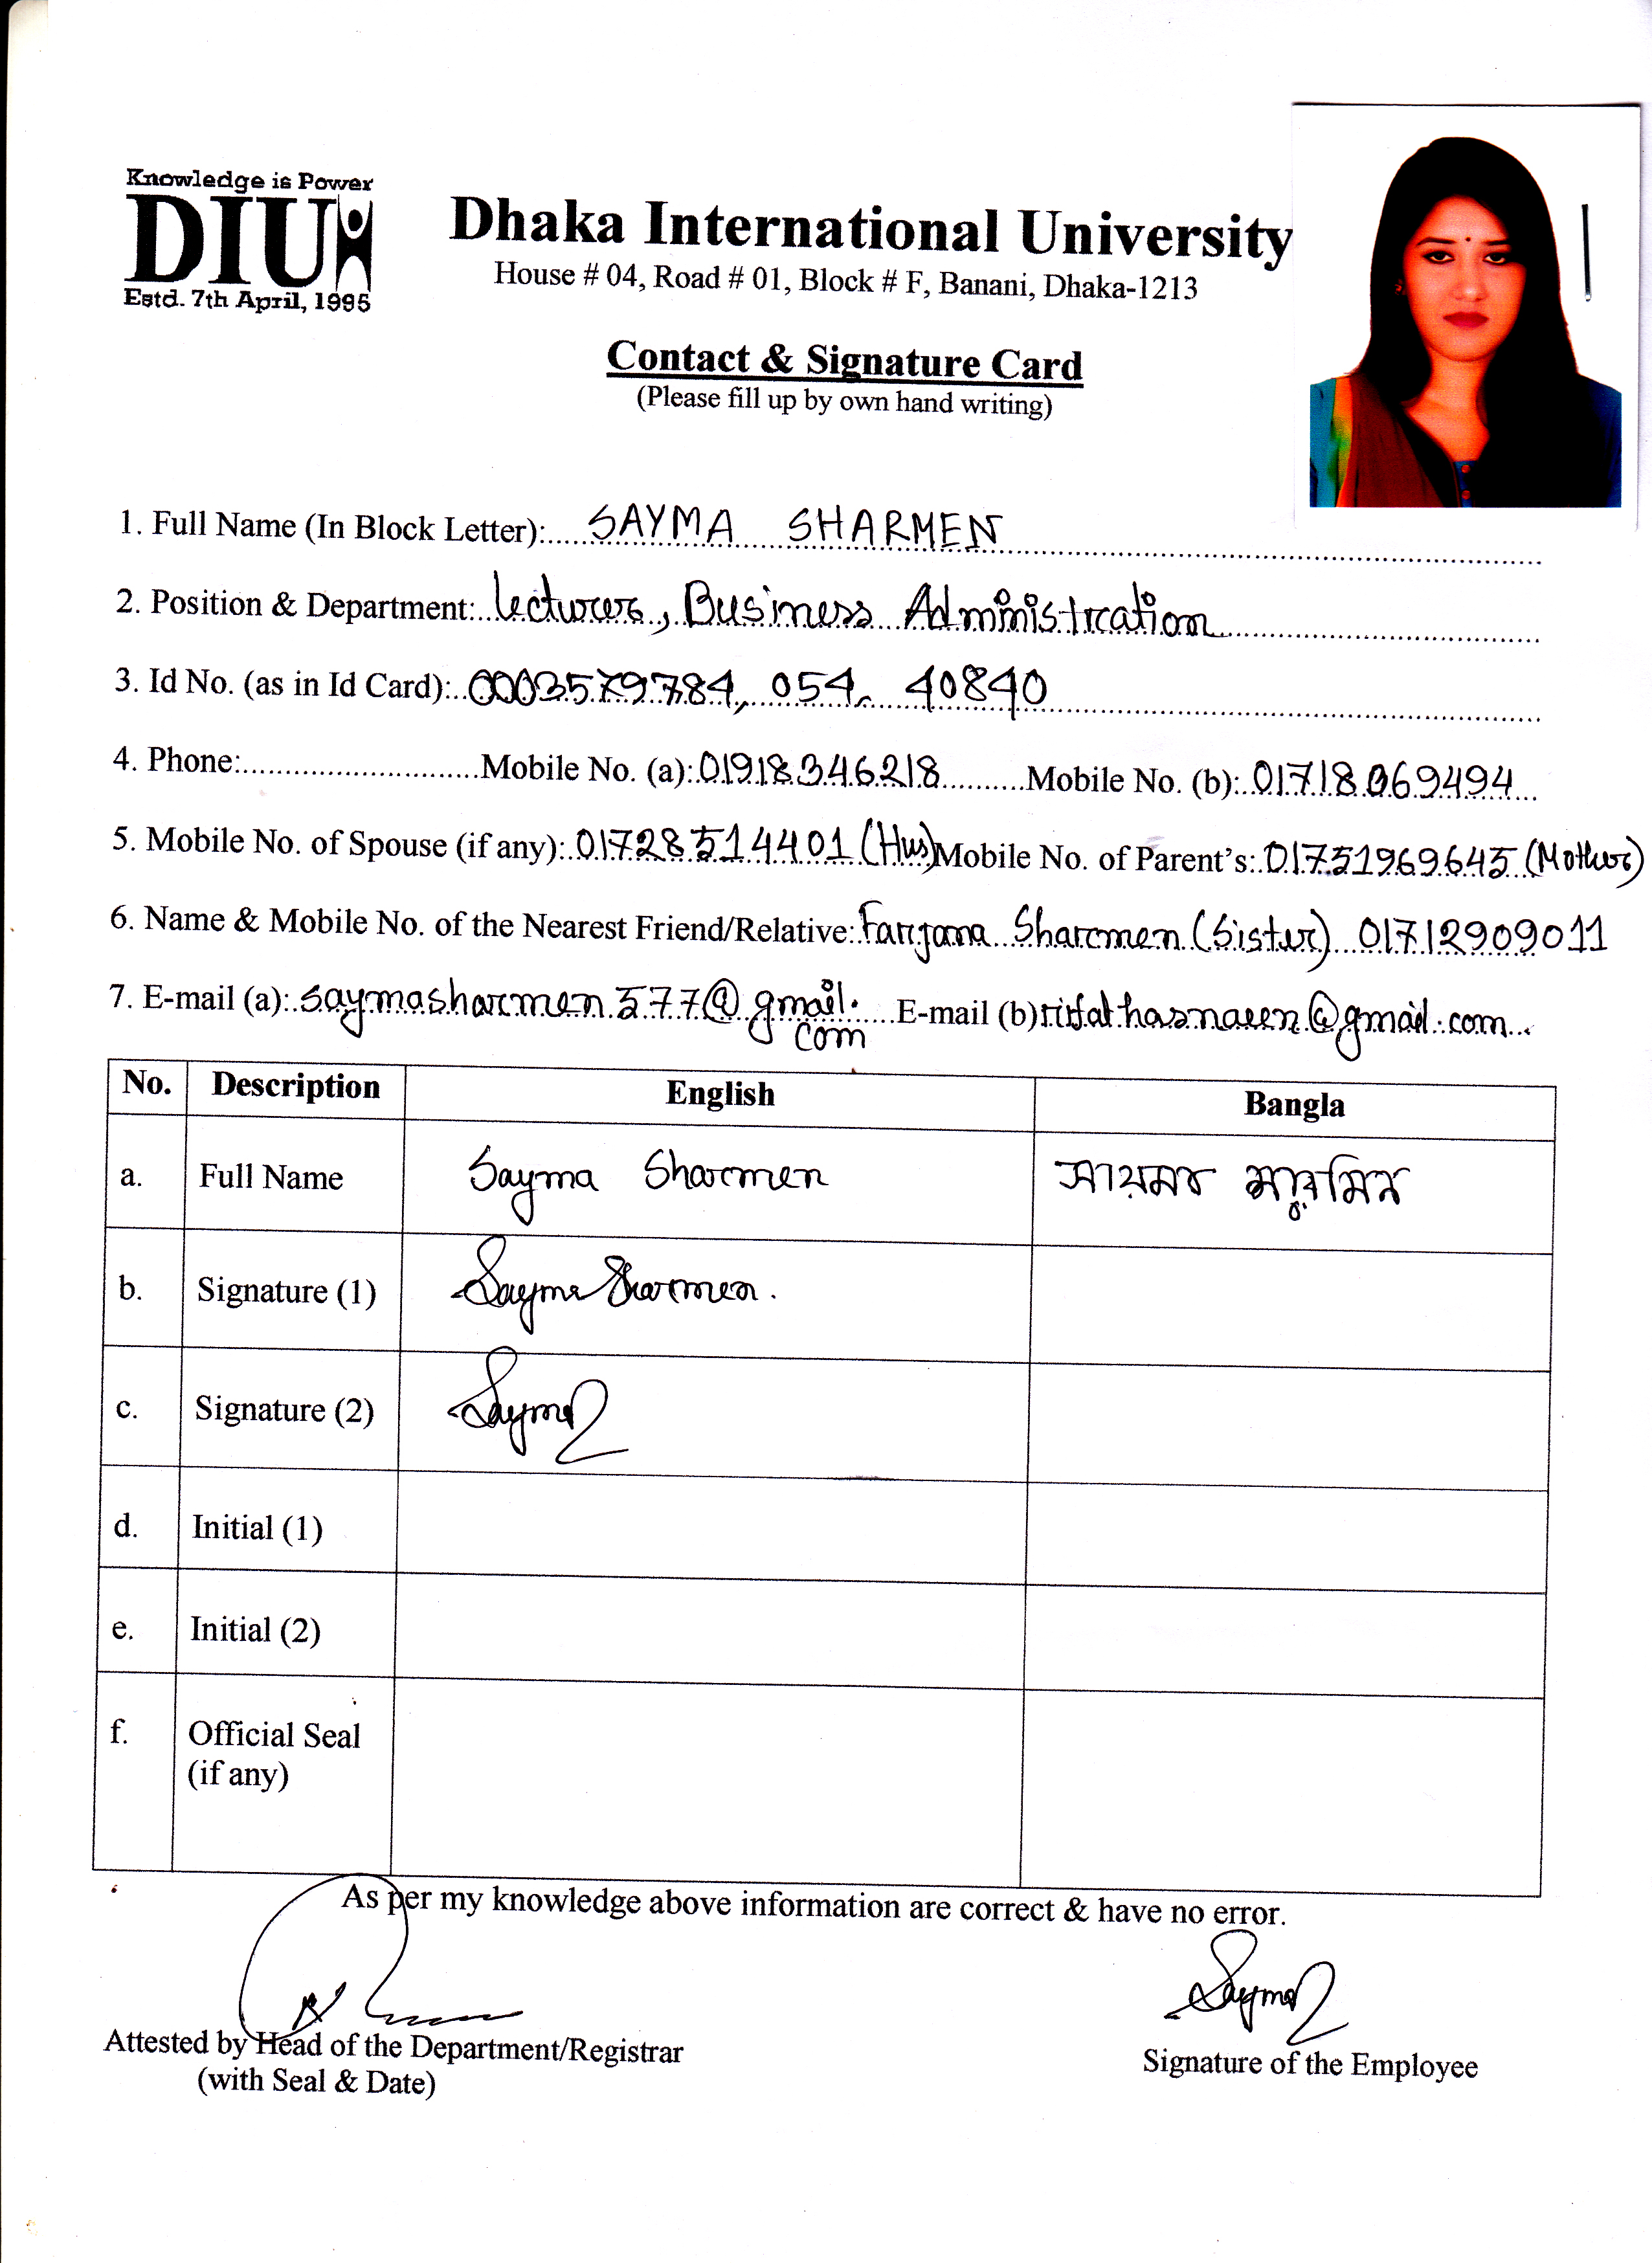 Knowledge is Power
DIU
Estd. 7th April, 1995
Dhaka International University
House # 04, Road # 01, Block # F, Banani, Dhaka-1213
Contact & Signature Card
(Please fill up by own hand writing)
1. Full Name (In Block Letter): SAYMA SHARMEN
2. Position & Department: Lecturer, Business Administration
3. Id No. (as in Id Card): 0003579784, 054, 40840
4. Phone: Mobile No. (a): 01918346218 Mobile No. (b): 01718069494
5. Mobile No. of Spouse (if any): 01728514401 (Hus) Mobile No. of Parent's: 01751969645 (Mother)
6. Name & Mobile No. of the Nearest Friend/Relative: Farjana Sharmen (Sister) 01712909011
7. E-mail (a): saymasharmen577@gmail.com E-mail (b) rifathasnaen@gmail.com
No. Description English Bangla
a. Full Name Sayma Sharmen সায়মা শারমিন
b. Signature (1) Sayma Sharmen.
c. Signature (2) Sayma
d. Initial (1)
e. Initial (2)
f. Official Seal
(if any)
As per my knowledge above information are correct & have no error.
Sayma
Attested by Head of the Department/Registrar
(with Seal & Date)
Signature of the Employee